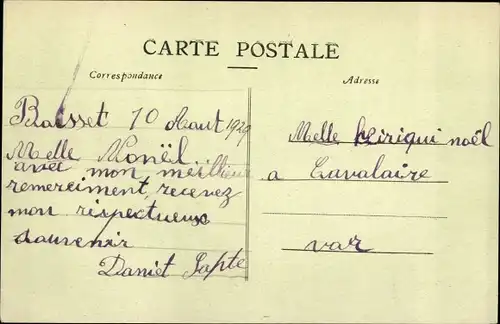 CARTE POSTALE
Correspondance
Adresse
Baisset 10 Aout 1929
Melle Monël
avec mon meilleur
remerciment, recevez
mon rispectueux
souvenir
Daniel Sapte
Melle noël
a Cavalaire
var